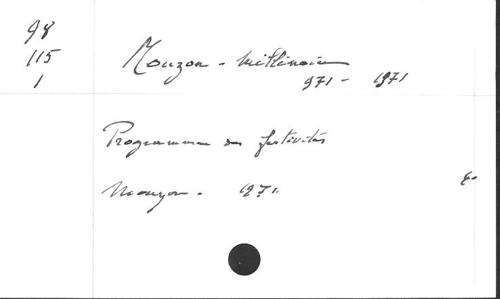 98
115
1
Mouzon - Millénaire
971 - 1971
Programme des festivités
Mouzon - 1971.